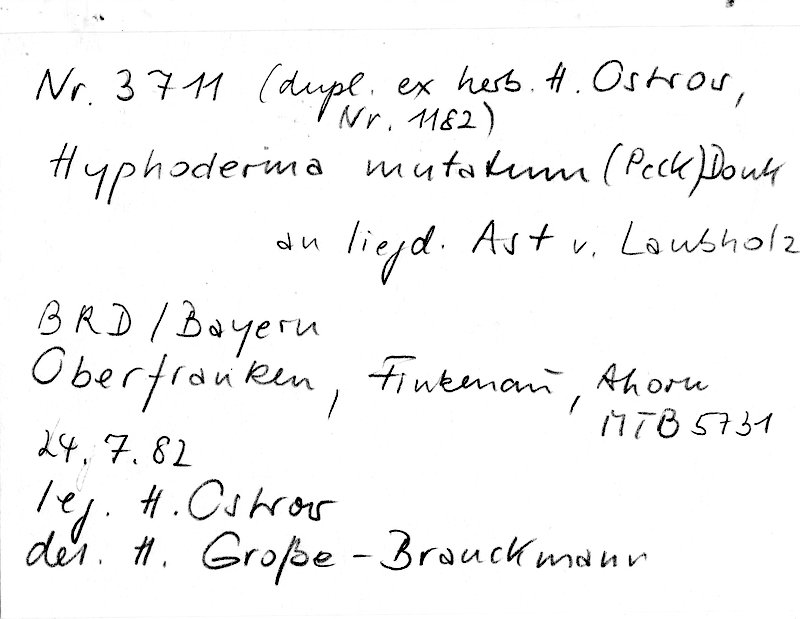 Nr. 3711 (dupl. ex herb. H. Ostrow,
Nr. 1182)
Hyphoderma mutatum (Peck) Donk
an liegd. Ast v. Laubholz
BRD / Bayern
Oberfranken, Finkenau, Ahorn
MTB 5731
24. 7. 82
leg. H. Ostrow
det. H. Große-Brauckmann